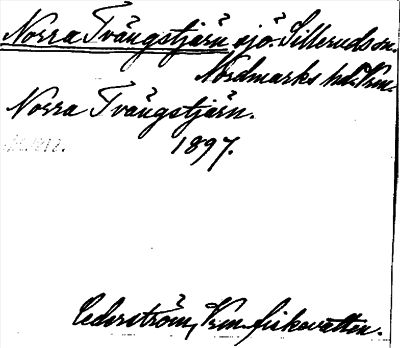 Norra Tvängstjärn sjö. Sillerud sn.
Nordmarks hd. Vrm.
Norra Tvängstjärn.
1897.
Cederström, Vrm. fiskevatten.